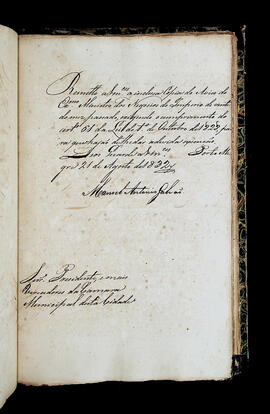 Remetto a Vm.ces a inclusa Copia do Aviso do
Ex.mo Ministro dos Negocios do Imperio de vinte
do mez passado, exigindo o cumprimento do
art.º 61 da Lei do 1º de Outubro de 1828, pa
ra que haja de lhe dar a devida execução
Deos Guarde a Vm.ces Porto Ale
gre 21 de Agosto de 1832
Manoel Antonio Galvão
Snr.es Presidente, e mais
Vereadores da Camara
Municipal desta Cidade